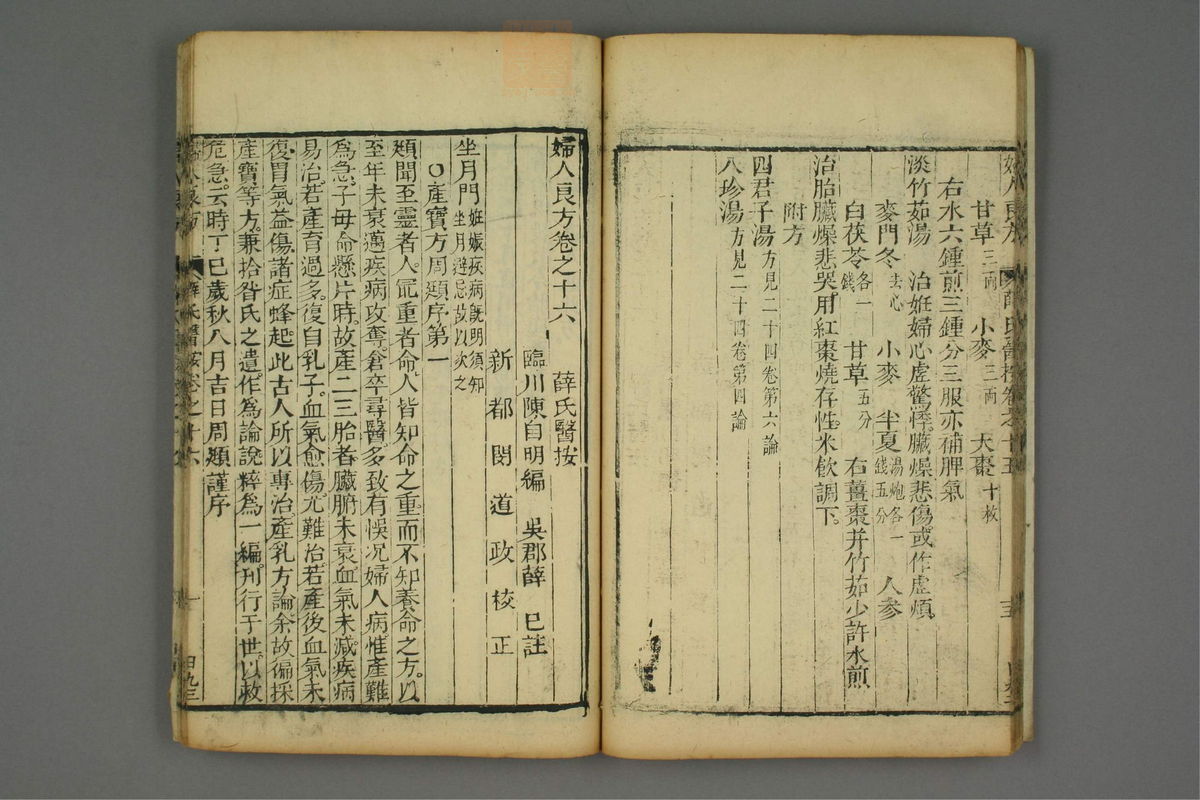 甘草三兩　小麥三兩　大棗十枚
右水六鍾煎三鍾分三服亦補脾氣
淡竹茹湯　治妊婦心虛驚悸臟燥悲傷或作虛煩
麥門冬去心　小麥　半夏湯炮各一錢五分　人參
白茯苓各一錢　甘草五分　右薑棗并竹茹少許水煎
治胎臟燥悲哭用紅棗燒存性米飲調下。
附方
四君子湯方見二十四卷第六論
八珍湯方見二十四卷第四論
婦人良方卷之十六　薛氏醫按
臨川陳自明編　吳郡薛　己註
新都閔道政校正
坐月門妊娠疾病旣明須知坐月避忌故以次之
○產寶方周頲序第一
頲聞至靈者人。㝡重者命。人皆知命之重。而不知養命之方。以
至年未衰邁疾病攻奪倉卒尋醫。多致有悞。况婦人病。惟產難
爲急。子母命懸片時。故產二三胎者。臟腑未衰。血氣未减。疾病
易治。若產育過多。復自乳子。血氣愈傷。尤難治。若產後血氣未
復。胃氣益傷。諸症蜂起。此古人所以專治產乳方論。余故徧採
產寶等方。兼拾昝氏之遺。作爲論說。粹爲一編。刊行于世。以救
危急。云時丁巳歲秋八月吉日周頲謹序